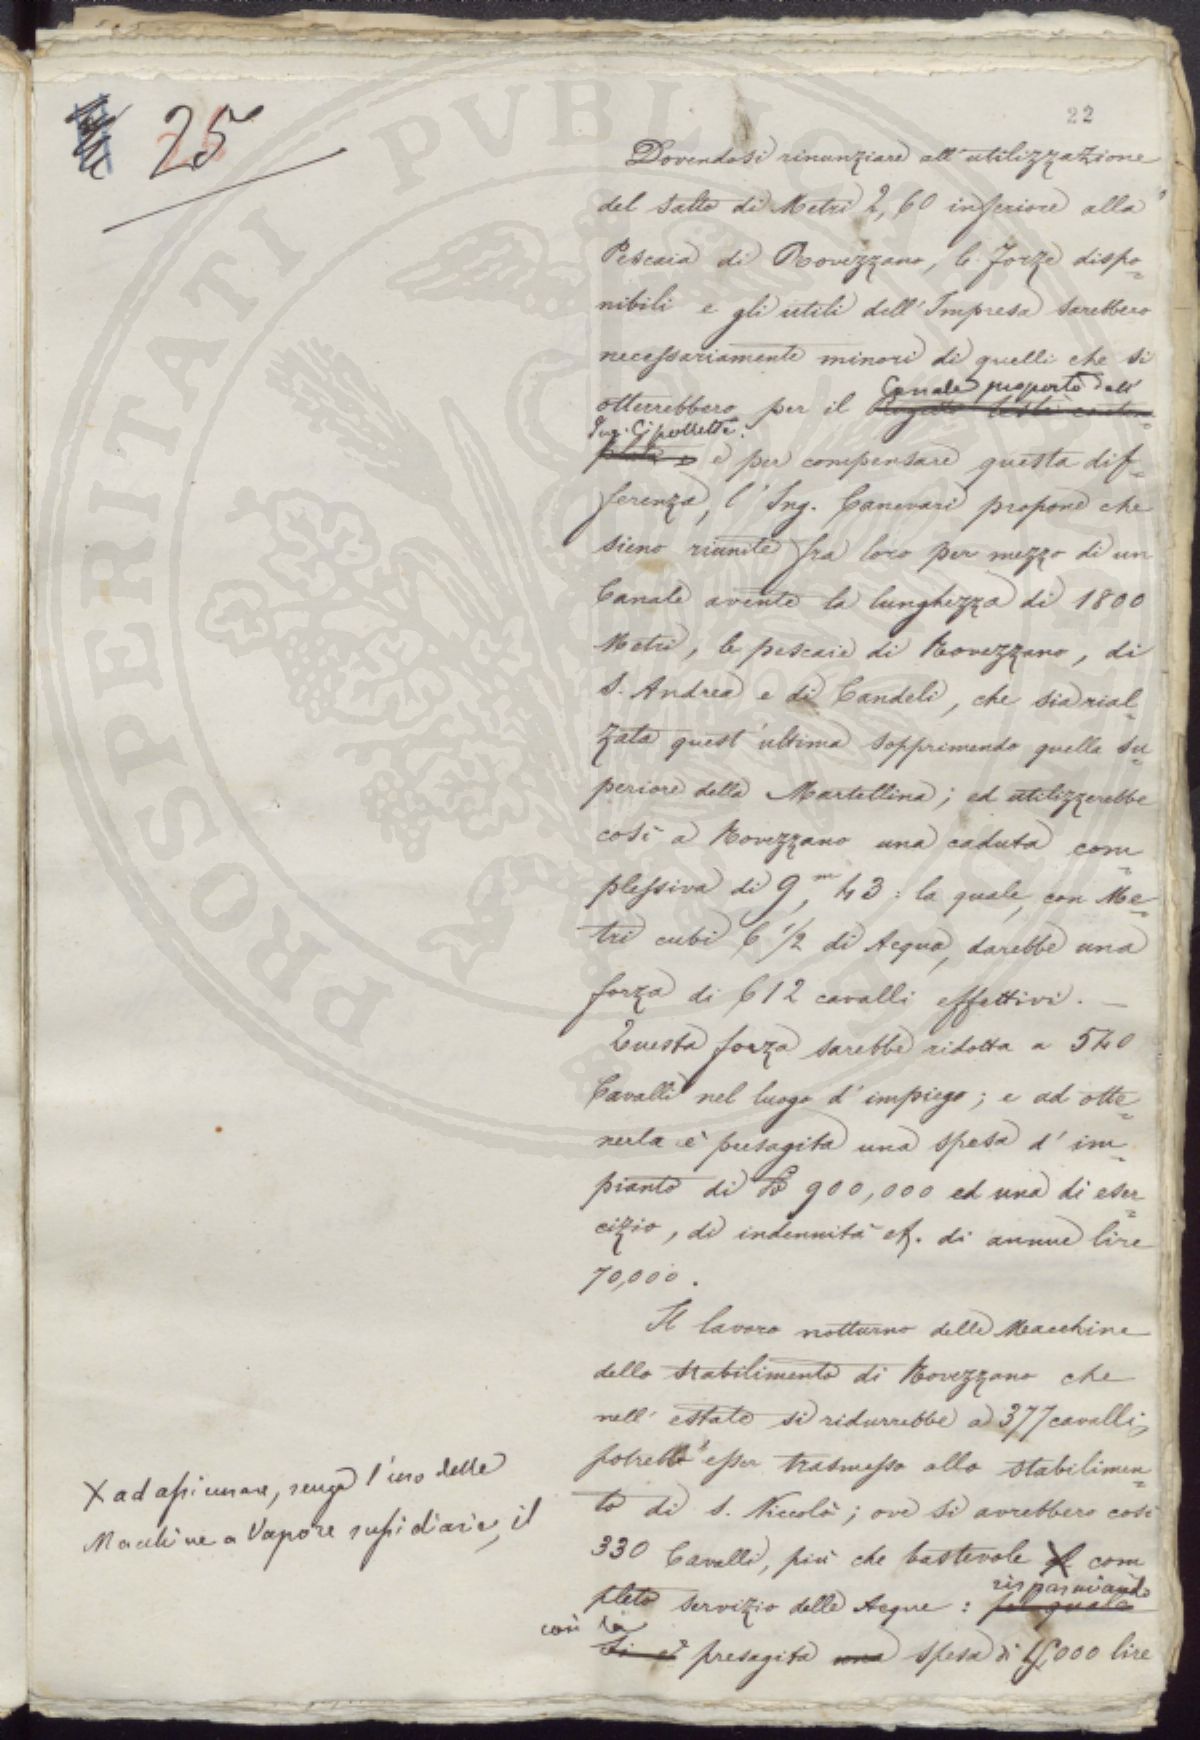 25
22
Dovendosi rinunziare all'utilizzazione
del salto di Metri 2,60 inferiore alla
Pescaia di Rovezzano, le Forze dispo=
nibili e gli utili dell'Impresa sarebbero
necessariamente minori di quelli che si
Canale proposto dall'
otterrebbero per il Progetto
Ing. Cipolletti:
e per compensare questa dif=
ferenza, l'Ing. Canevari propone che
sieno riunite fra loro per mezzo di un
Canale avente la lunghezza di 1800
Metri, le pescaie di Rovezzano, di
S. Andrea e di Candeli, che sia rial=
zata quest'ultima sopprimendo quella su=
periore della Martellina; ed utilizzerebbe
così a Rovezzano una caduta com=
plessiva di 9,m 43: la quale, con Me=
tri cubi 6 1/2 di Acqua, darebbe una
forza di 612 cavalli effettivi. —
Questa forza sarebbe ridotta a 540
Cavalli nel luogo d'impiego; e ad otte=
nerla è presagita una spesa d'im=
pianto di £ 900,000 ed una di eser=
cizio, di indennità ef. di annue lire
70,000.
Il lavoro notturno delle Macchine
dello stabilimento di Rovezzano che
nell'estate si ridurrebbe a 377 cavalli,
potrebbe esser trasmesso allo stabilimen=
to di S. Niccolò; ove si avrebbero così
330 Cavalli, più che bastevole al X com
pleto servizio delle Acque: pel quale
risparmiando
così la
si è presagita una spesa di 45000 lire
X ad assicurare, senza l'uso delle
Macchine a Vapore sussidiarie, il
PROSPERITATI PVBLICAE